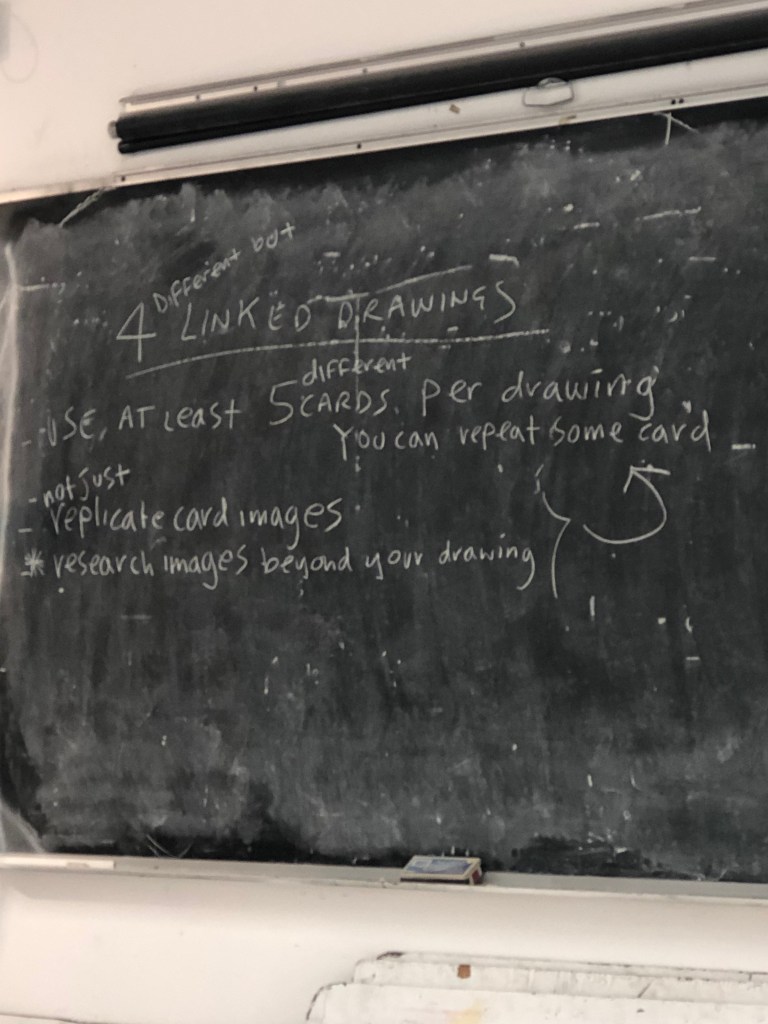 Different but
4 LINKED DRAWINGS
different
- USE, AT Least 5 CARDS. Per drawing
You can repeat some card
- not just
- replicate card images
* research images beyond your drawing